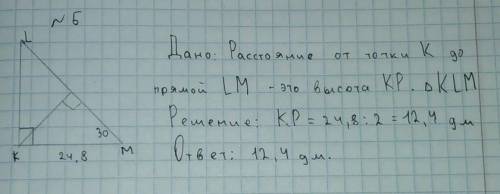 № 5
L
30
K 24,8 M
Дано: Расстояние от точки K до
прямой LM - это высота KP. ΔKLM
Решение: KP = 24,8 : 2 = 12,4 дм
Ответ: 12,4 дм.